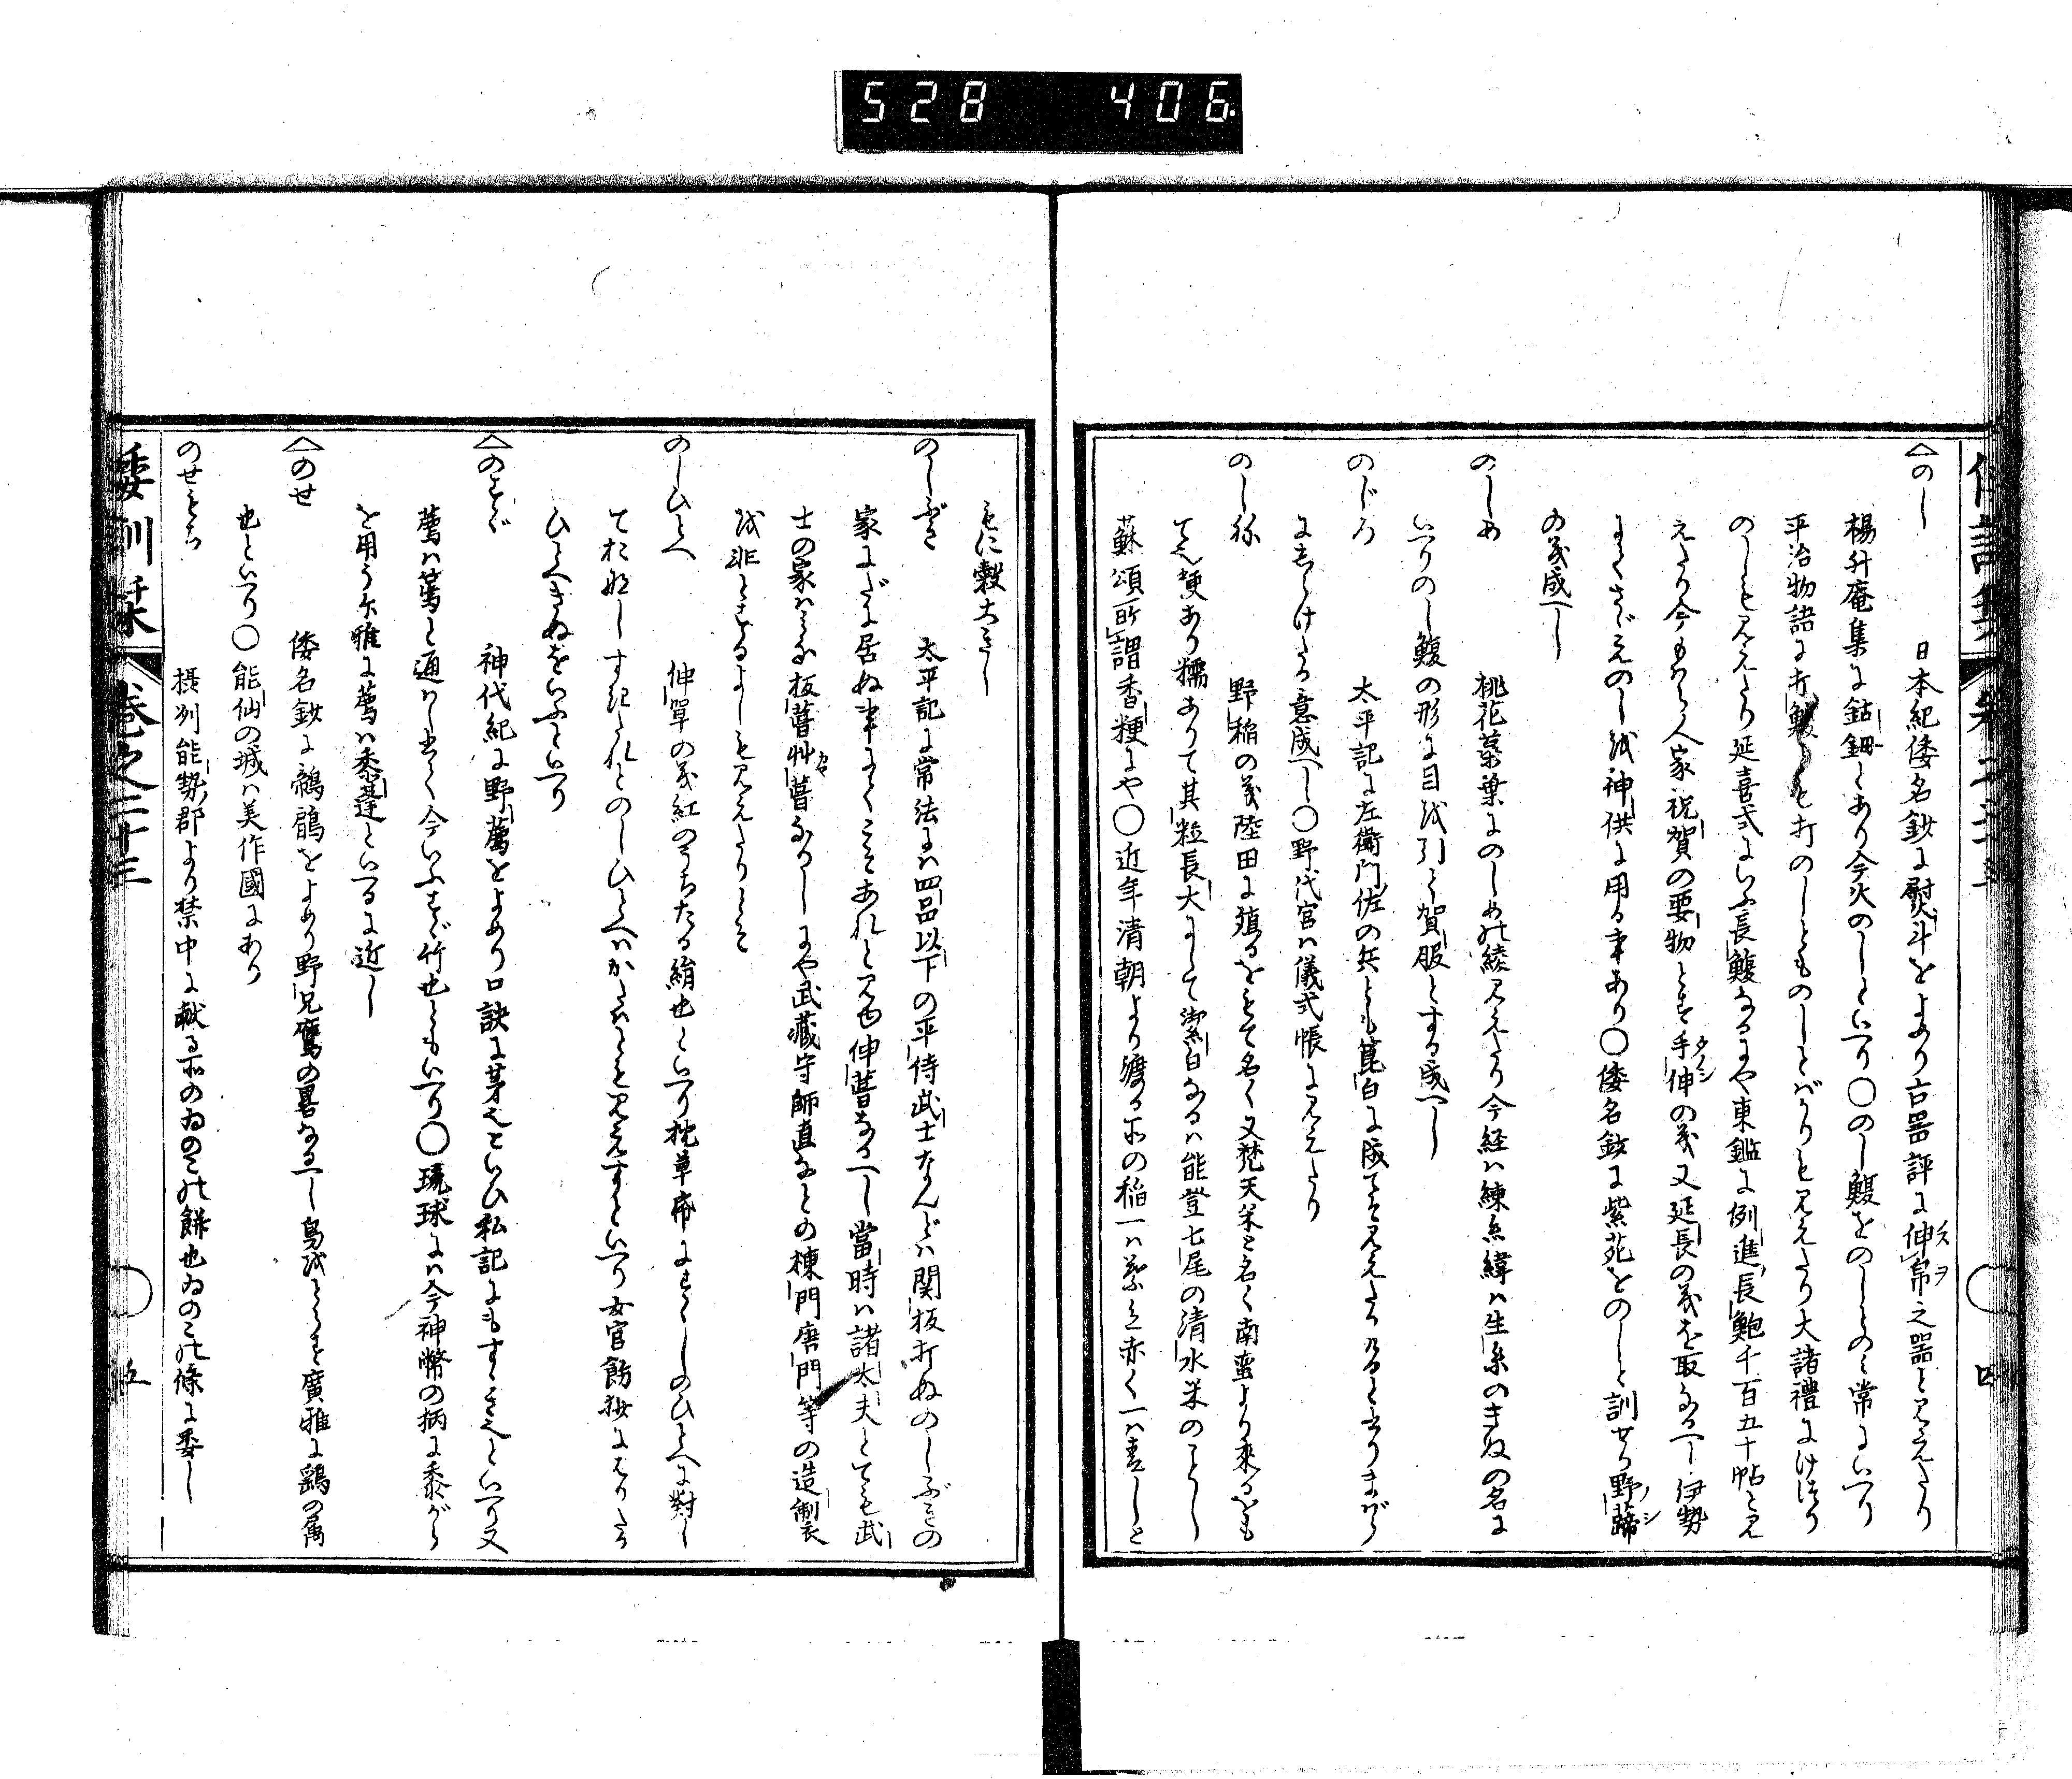 528 406
倭訓栞 巻二十三 四
のし 日本紀倭名鈔に熨斗をよめり古器評に伸帛之器と見えたり
楊升庵集に鈷鉧とあり今火のしといへり○のし鰒をのしとのミ常にいへり
平治物語に打鰒しを打のしとものしとばかりも見えたり大諸禮にけづり
のしも見えたり延喜式にいふ長鰒なるにや東鑑に例進長鮑千百五十帖と見
えたり今もはら人家祝賀の要物とす手伸の義又延長の義を取なるへし伊勢
にてさゞえのし或神供に用る事あり○倭名鈔に紫苑をのしと訓せり野蹄
の義成へし
のしめ 桃花蘂葉にのしめ綾見えたり今経ハ練糸緯ハ生糸のきぬの名に
いへりのし鰒の形に目を引て賀服とする成へし
のじろ 太平記に左衛門佐の兵とも箆白に成てそ見えたりけると云りまがり
にまうけたる意成へし○野代宮ハ儀式帳に見えたり
のし祢 野稲の義陸田に殖るをもて名く又梵天米と名く南蛮より来るをも
て也粳あり糯ありて其粒長大にして潔白なるハ能登七尾の清水米のことし
蘇頌所謂香粳にや○近年清朝より渡る所の稲一ハ葉も赤く一ハ青しと
もに穀大きし
のしぶき 太平記に常法にハ四品以下の平侍武士なんどハ関板打ぬのしぶきの
家にだに居ぬ事にてこそあれと見ゆ伸葺なるへし當時ハ諸太夫とても武
士の家ハミな板葺艸葺なるしにや武蔵守師直などの棟門唐門等の造製
を非とせるよしも見えたりとそ
のしひとへ 伸單の義紅のうちたる絹也といへり枕草帋にすゝしのひとへに對し
ておかしす記されとのしひとへハかたハとも見えすといへり女官飾抄にはりたる
ひとへきぬをいふといへり
のすゞ 神代紀に野薦をよめり口訣に茅也といひ私記にもすゝき也といへり又
薦ハ篶と通ハし書く今いふすゞ竹也ともいへり○琉球にハ今神幣の柄に黍がら
を用う尓雅に薦ハ黍蓬といへるに近し
のせ 倭名鈔に鵏鶻をよめり野兄鷹の畧なるへし鳥をとらす廣雅に鷂の属
也といへり○能仙の城ハ美作國にあり
のせもち 摂州能勢郡より禁中に献る所のゐのこの餅也ゐのこの條に委し
倭訓栞 巻之二十三 五